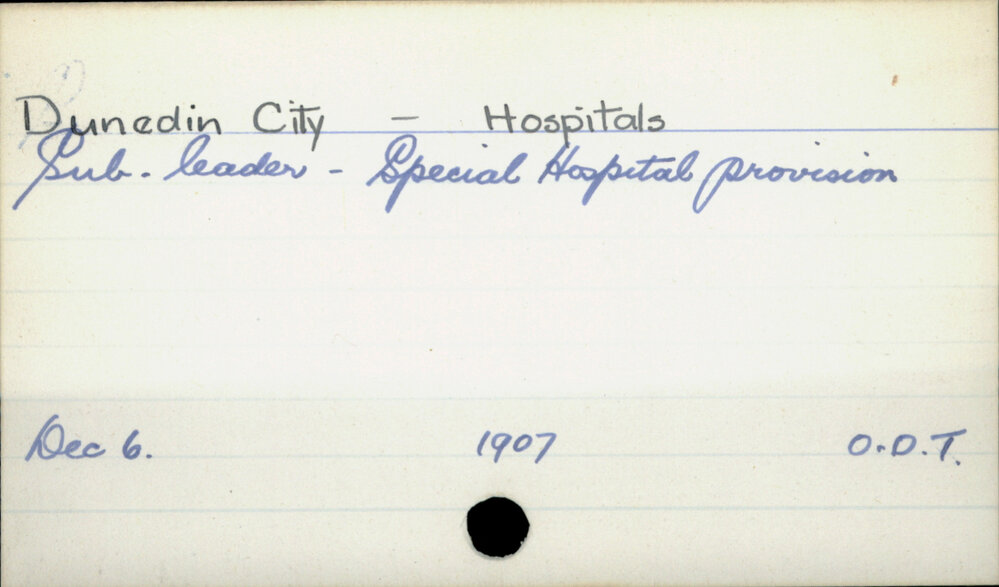 Dunedin City - Hospitals
Sub. leader - Special Hospital provision
Dec 6. 1907 O.D.T.